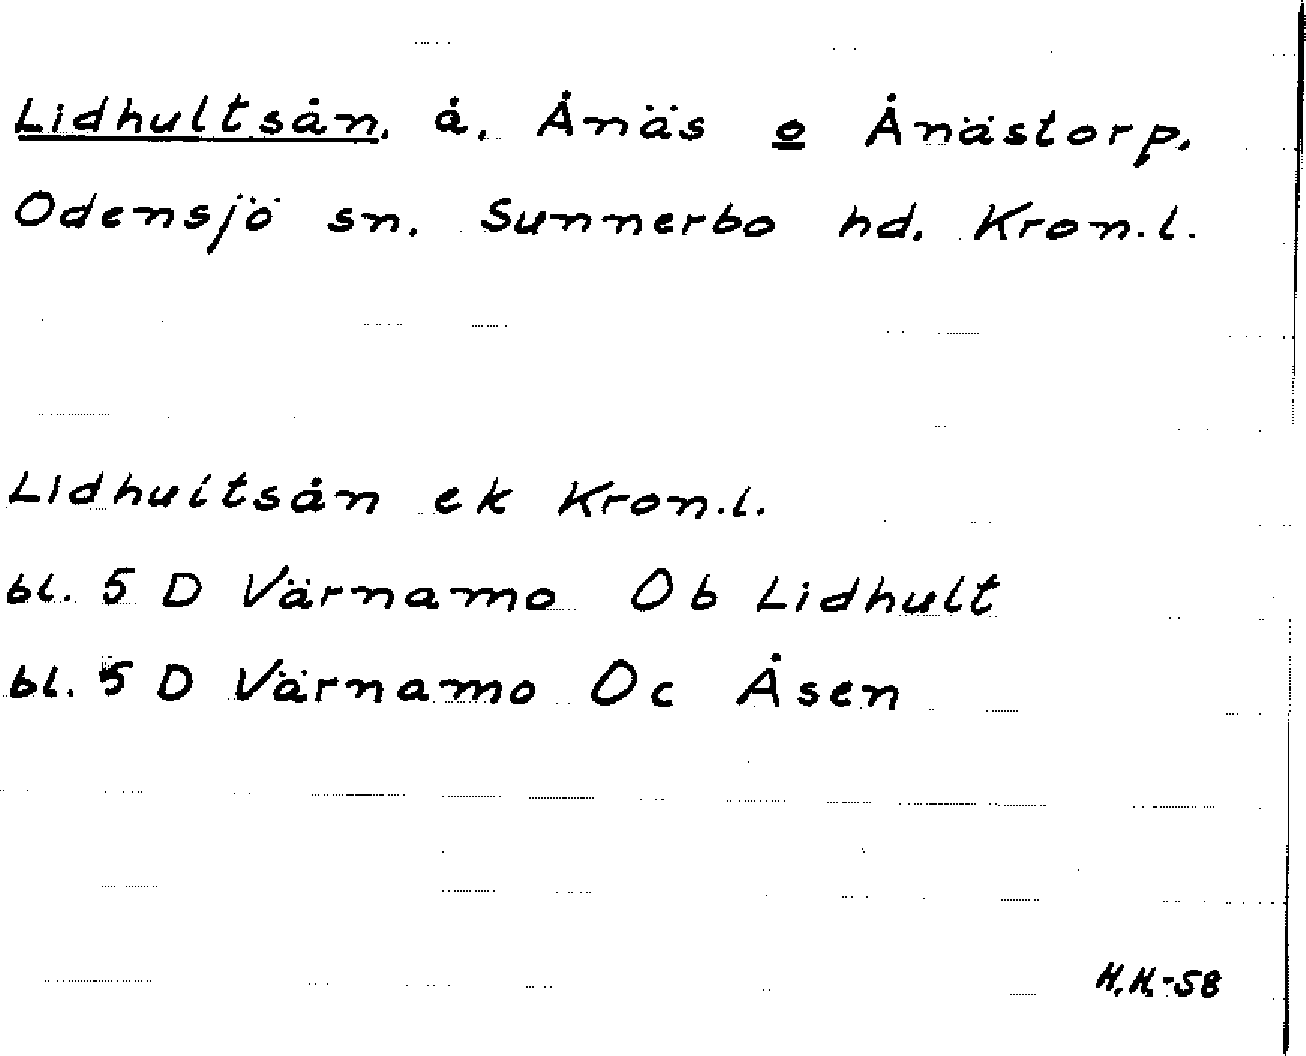 Lidhultsån, å, Ånäs o Ånästorp,
Odensjö sn. Sunnerbo hd. Kron.l.
Lidhultsån ek Kron.l.
bl. 5 D Värnamo Ob Lidhult
bl. 5 D Värnamo Oc Åsen
H.H.-58